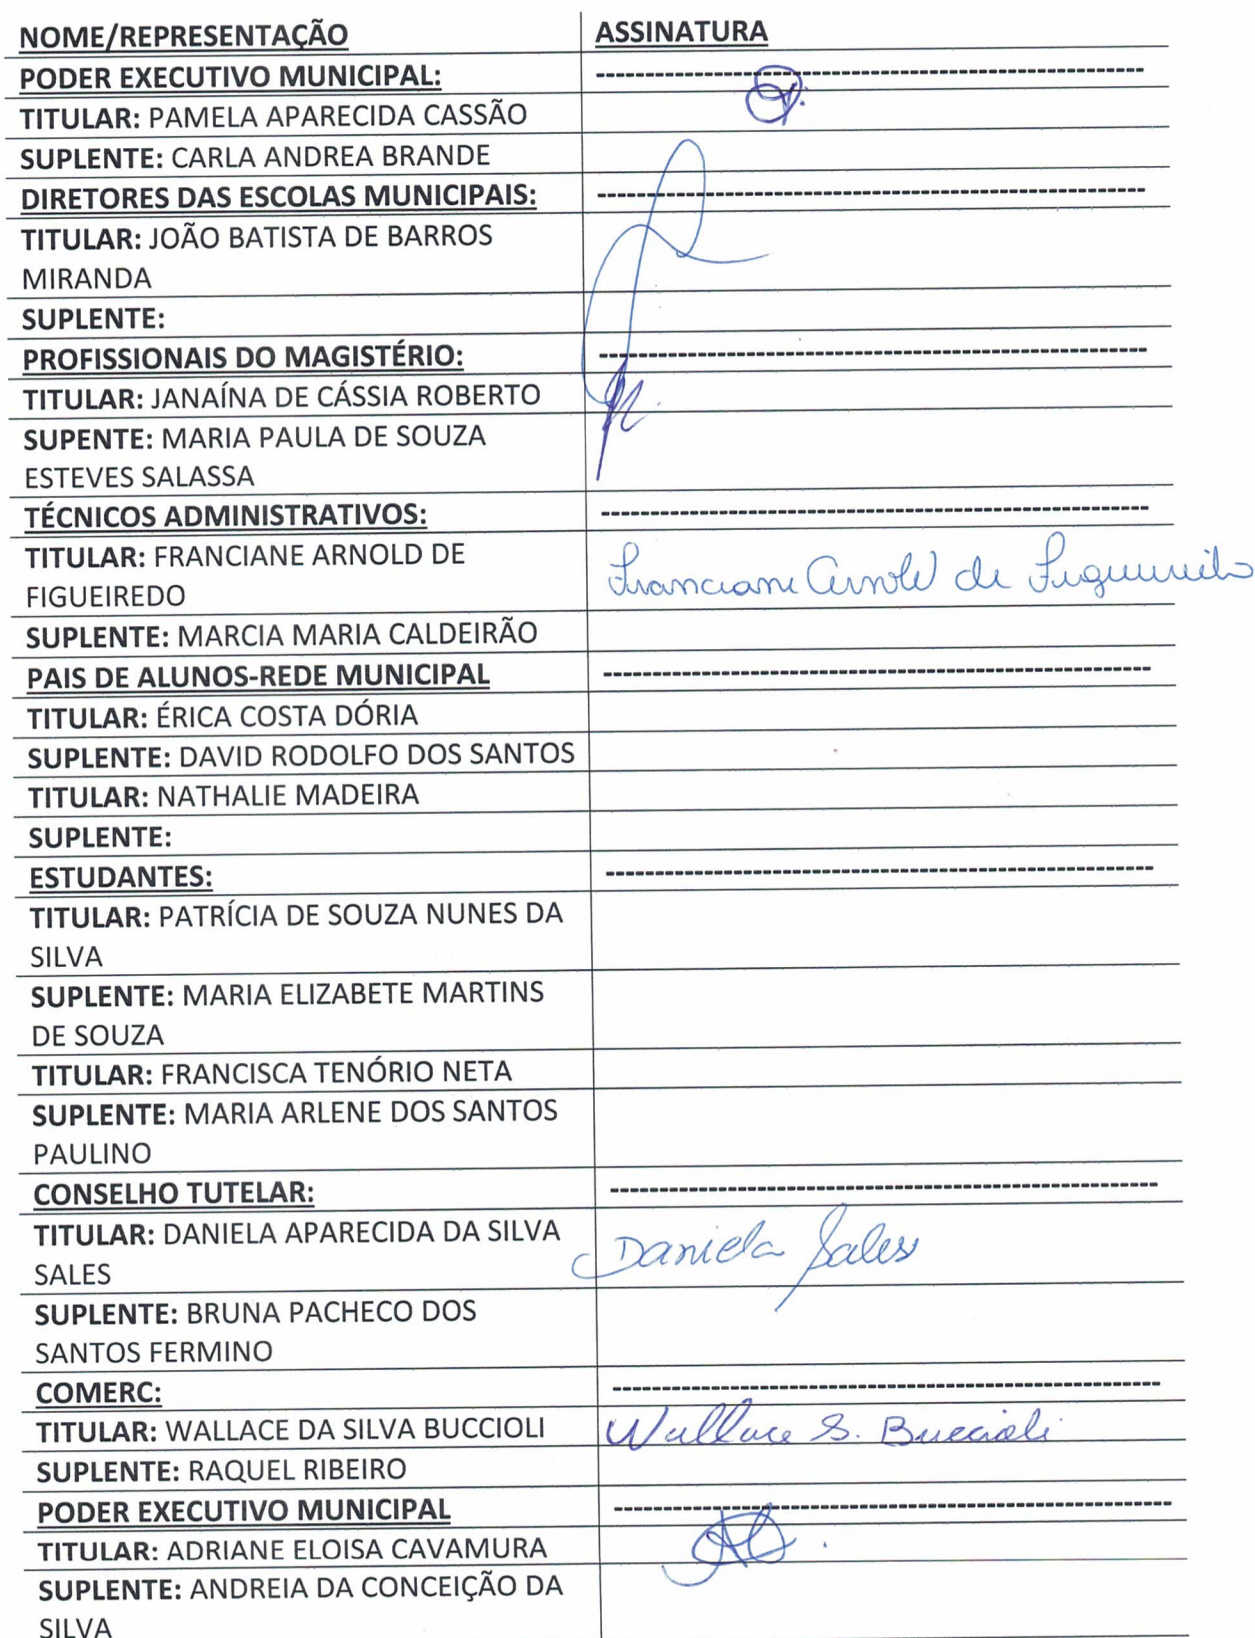 NOME/REPRESENTAÇÃO ASSINATURA
PODER EXECUTIVO MUNICIPAL: --------------------------------------------------------
TITULAR: PAMELA APARECIDA CASSÃO
SUPLENTE: CARLA ANDREA BRANDE
DIRETORES DAS ESCOLAS MUNICIPAIS: --------------------------------------------------------
TITULAR: JOÃO BATISTA DE BARROS
MIRANDA
SUPLENTE:
PROFISSIONAIS DO MAGISTÉRIO: --------------------------------------------------------
TITULAR: JANAÍNA DE CÁSSIA ROBERTO
SUPENTE: MARIA PAULA DE SOUZA
ESTEVES SALASSA
TÉCNICOS ADMINISTRATIVOS: --------------------------------------------------------
TITULAR: FRANCIANE ARNOLD DE
FIGUEIREDO
Franciane Arnold de Figueiredo
SUPLENTE: MARCIA MARIA CALDEIRÃO
PAIS DE ALUNOS-REDE MUNICIPAL --------------------------------------------------------
TITULAR: ÉRICA COSTA DÓRIA
SUPLENTE: DAVID RODOLFO DOS SANTOS
TITULAR: NATHALIE MADEIRA
SUPLENTE:
ESTUDANTES: --------------------------------------------------------
TITULAR: PATRÍCIA DE SOUZA NUNES DA
SILVA
SUPLENTE: MARIA ELIZABETE MARTINS
DE SOUZA
TITULAR: FRANCISCA TENÓRIO NETA
SUPLENTE: MARIA ARLENE DOS SANTOS
PAULINO
CONSELHO TUTELAR: --------------------------------------------------------
TITULAR: DANIELA APARECIDA DA SILVA
SALES
Daniela Sales
SUPLENTE: BRUNA PACHECO DOS
SANTOS FERMINO
COMERC: --------------------------------------------------------
TITULAR: WALLACE DA SILVA BUCCIOLI Wallace S. Buccioli
SUPLENTE: RAQUEL RIBEIRO
PODER EXECUTIVO MUNICIPAL --------------------------------------------------------
TITULAR: ADRIANE ELOISA CAVAMURA
SUPLENTE: ANDREIA DA CONCEIÇÃO DA
SILVA